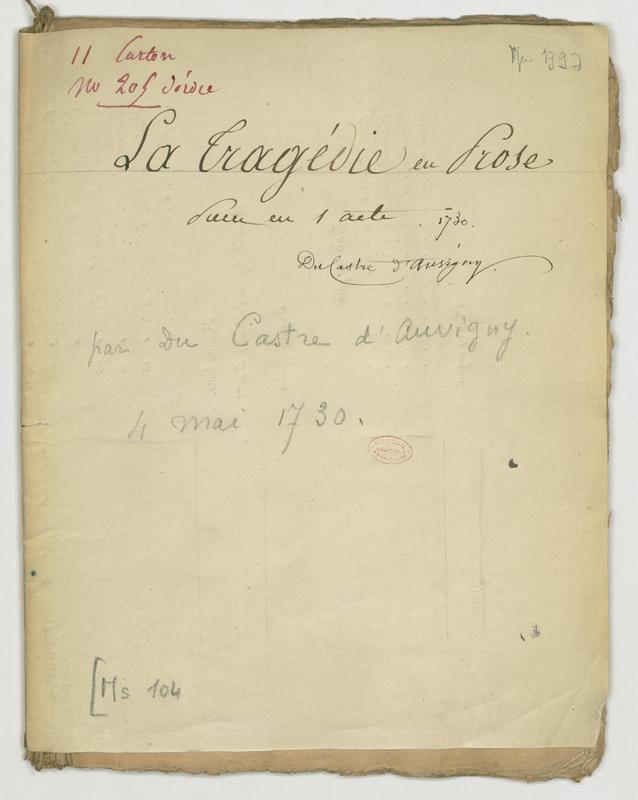 11 Carton
No 205 d'ordre
La Tragédie en Prose
en 1 acte . 1730.
Du Castre d'Auvigny.
par Du Castre d'Auvigny.
4 mai 1730.
[Ms 104